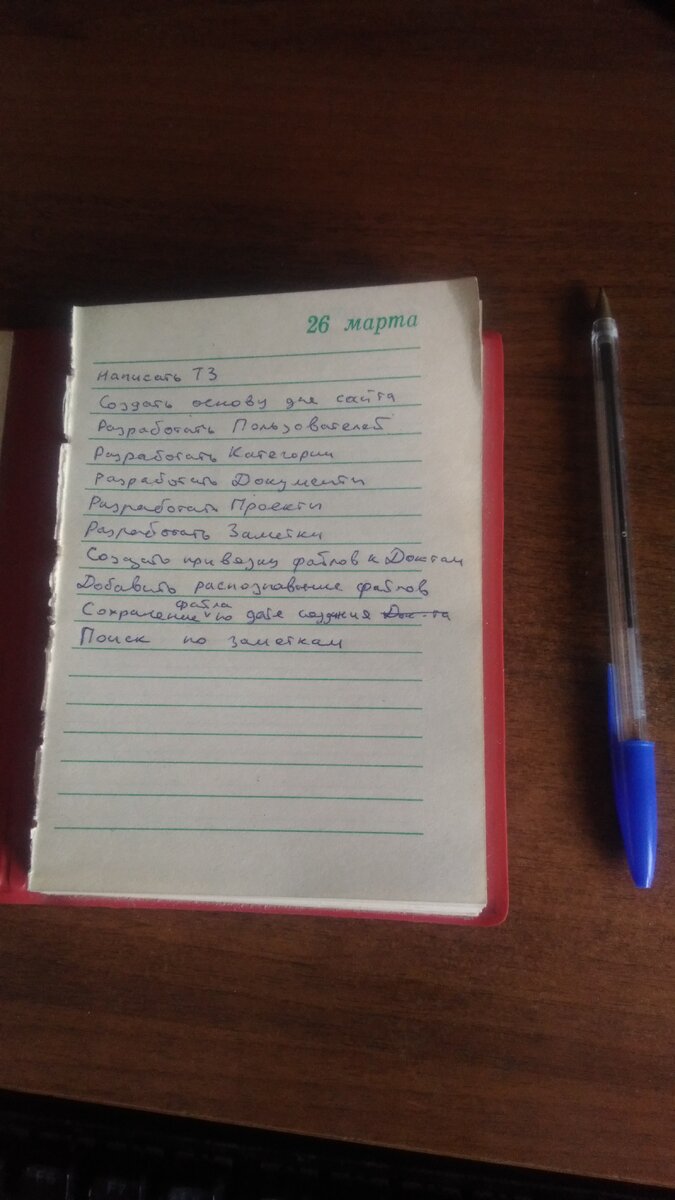 26 марта
Написать ТЗ
Создать основу для сайта
Разработать Пользователей
Разработать Категории
Разработать Документы
Разработать Проекты
Разработать Заметки
Создать привязку файлов к Док-там
Добавить распознавание файлов
Сохранение файла по дате создания Док-та
Поиск по заметкам